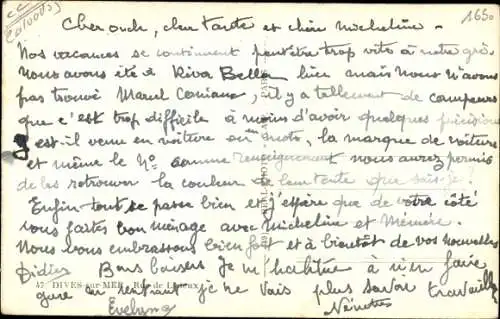 CC
(Calvados)
1650
Cher oncle, cher tante et chère Micheline -
Nos vacances se continuent peut être trop vite à notre gré.
Nous avons été à Riva Bella hier mais nous n'avons
pas trouvé Marcel, il y a tellement de campeurs
que c'est trop difficile à moins d'avoir quelques précisions
est-il venu en voiture ou moto, la marque de voiture
et même le No comme renseignement nous aurez permis
de les retrouver la couleur de leur tente que sais-je !
Enfin tout se passe bien et j'espère que de votre côté
vous faites bon ménage avec Micheline et Mémère.
Nous vous embrassons bien fort et à bientôt de vos nouvelles
Didier Bons baisers Je m'habitue à rien faire
47 DIVES-sur-MER - Rue de Lisieux
gare en rentrant je ne vais plus savoir travailler
Evelyne